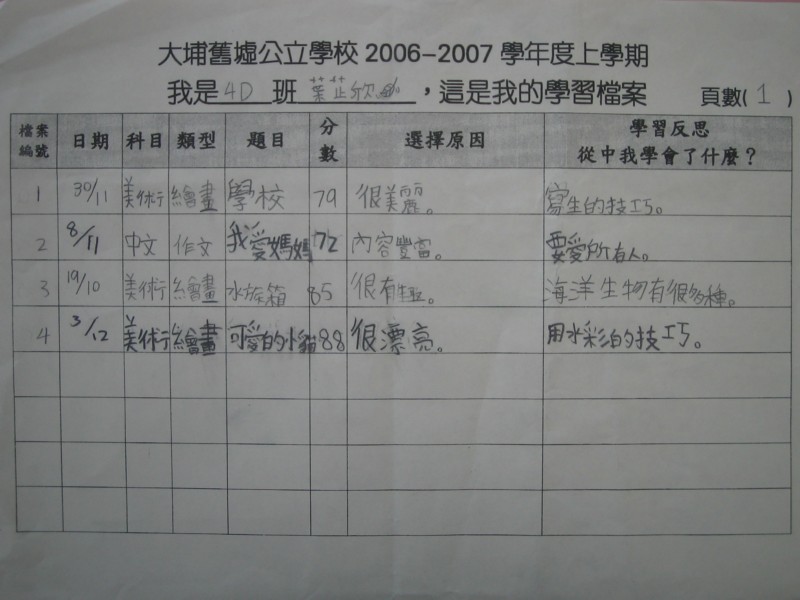 大埔舊墟公立學校 2006-2007 學年度上學期
我是 4D 班 葉芷欣 ，這是我的學習檔案 頁數( 1 )
檔案編號 日期 科目 類型 題目 分數 選擇原因 學習反思 從中我學會了什麼？
1 30/11 美術 繪畫 學校 79 很美麗。 寫生的技巧。
2 8/11 中文 作文 我愛媽媽 72 內容豐富。 要愛所有人。
3 19/10 美術 繪畫 水族箱 85 很有 海洋生物有很多種。
4 3/12 美術 繪畫 可愛的小貓 88 很漂亮。 用水彩的技巧。